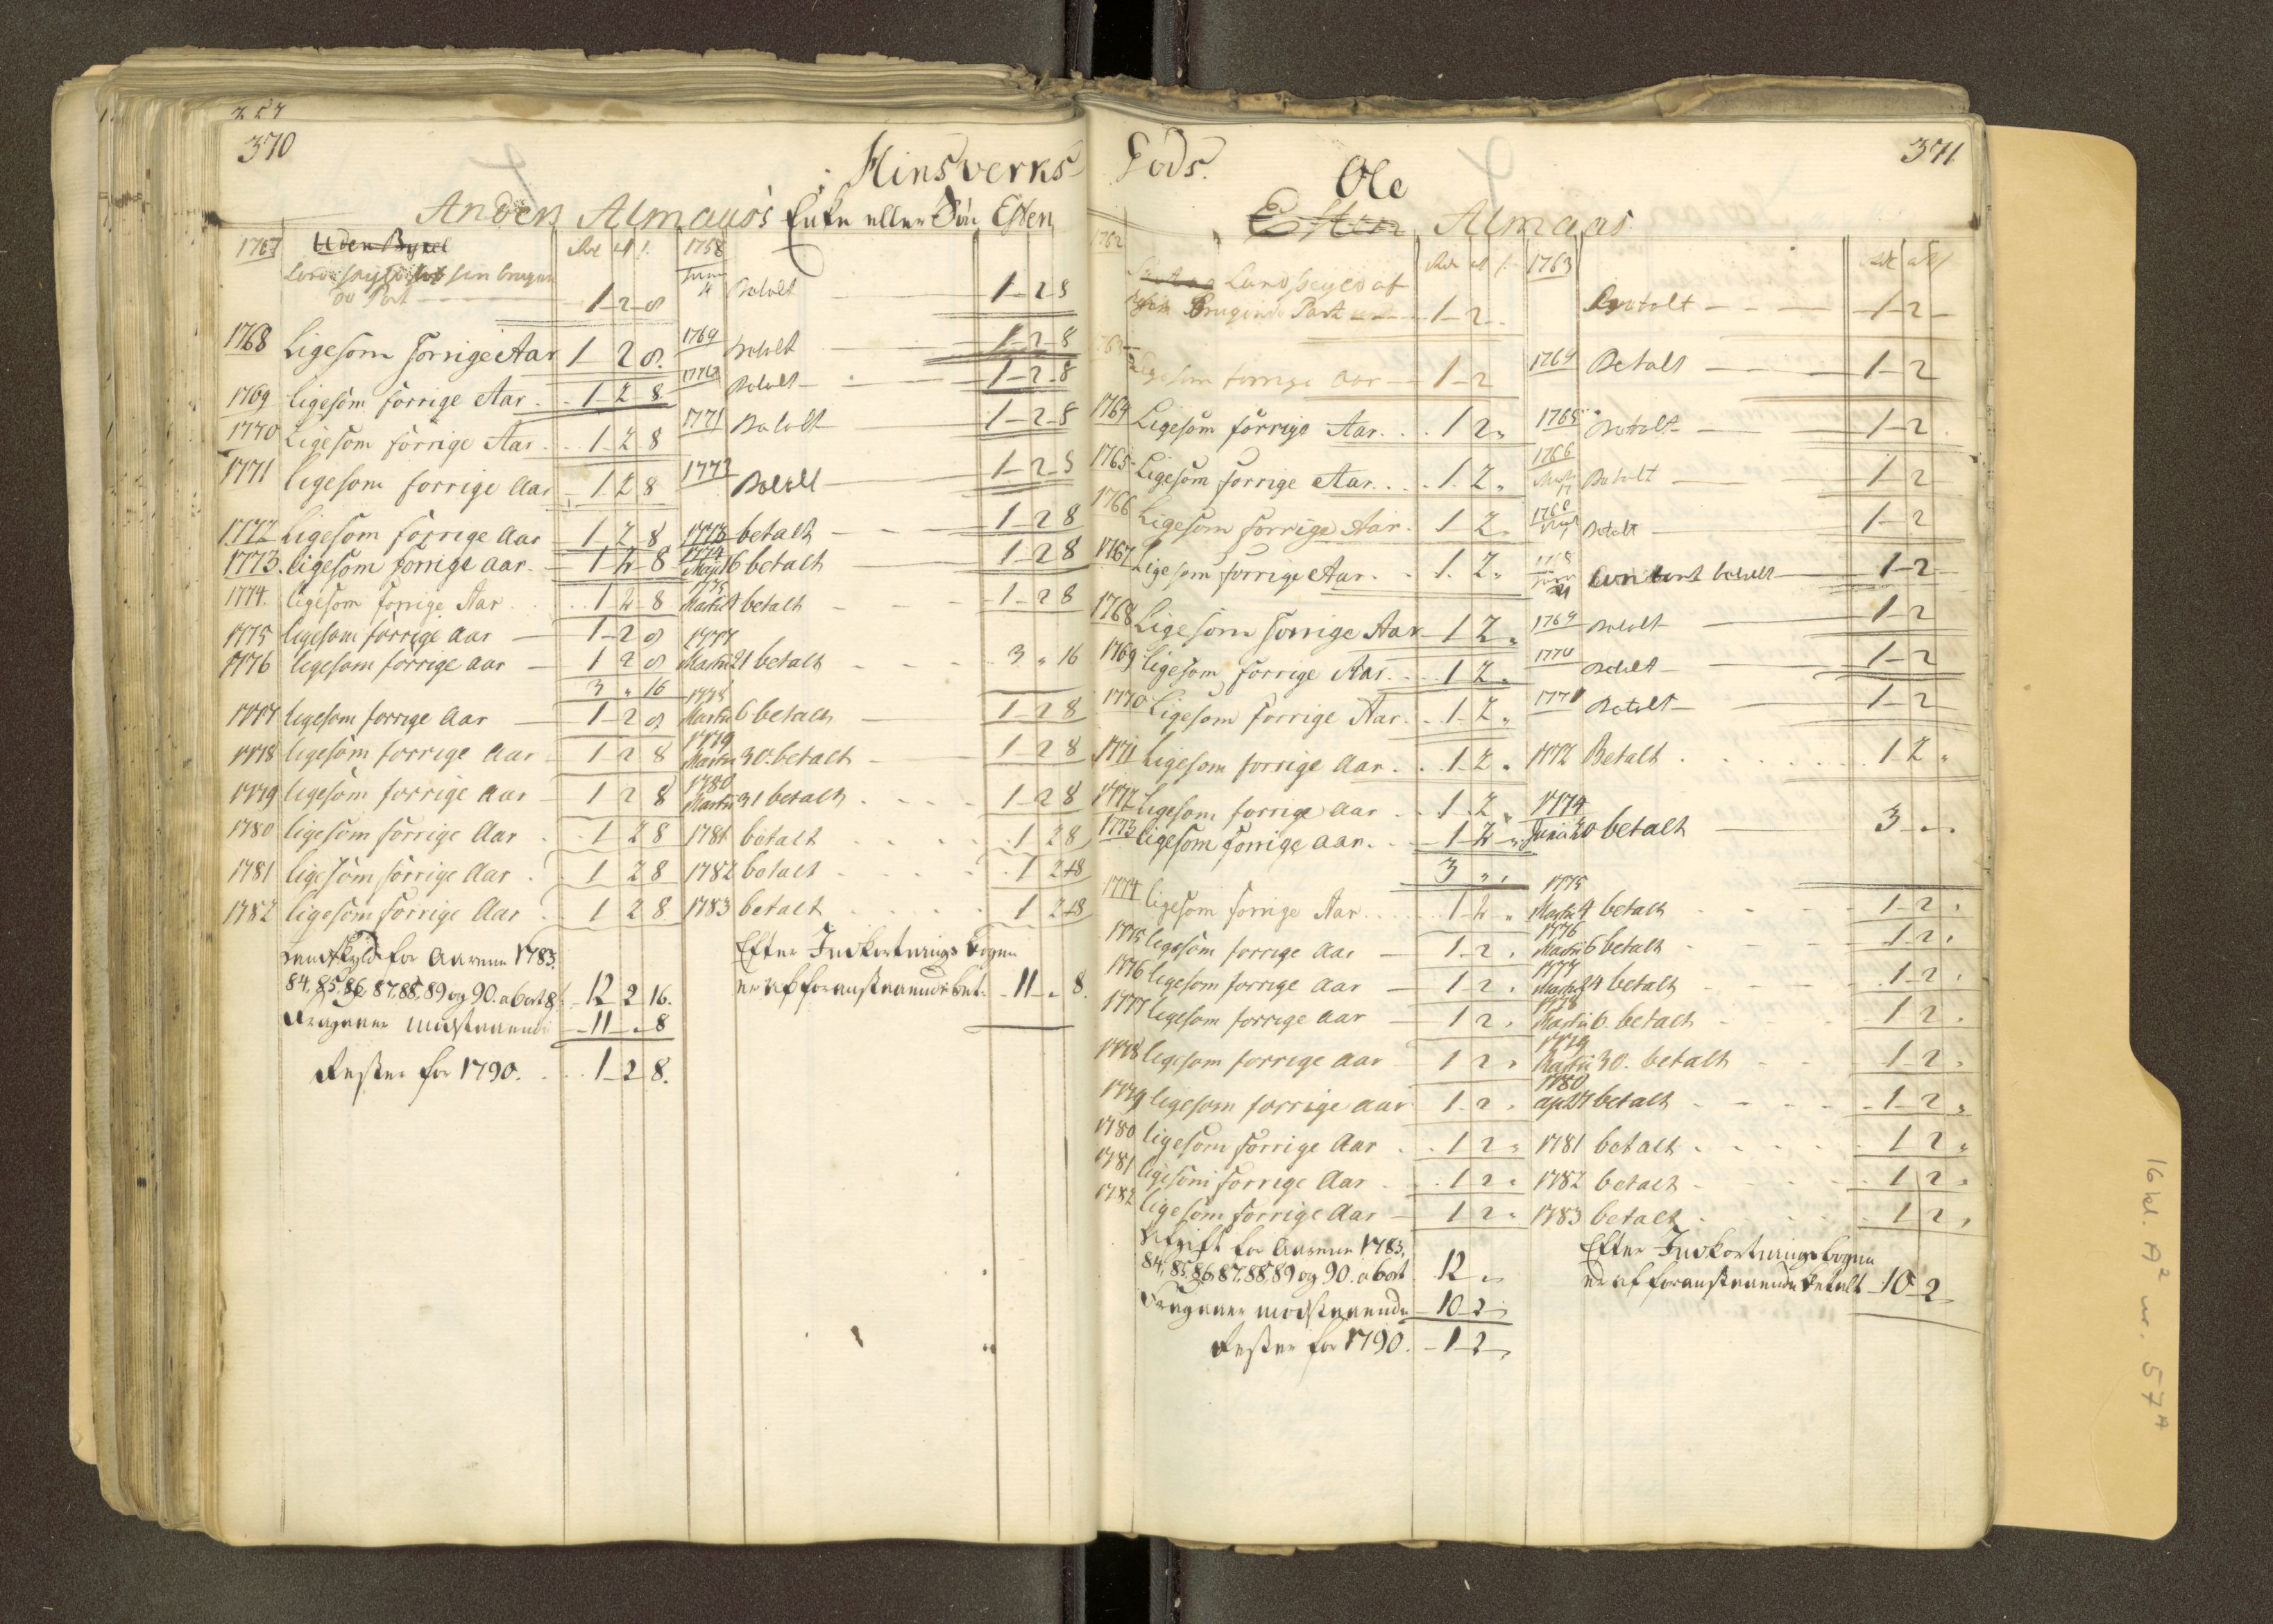 370
Hinsverks
Anders Almaaes Enke eller Søn Esten
1767 Uden Byxel
1 2 8
1758 Juni 4 Betalt 1-2-8
1768 Ligesom Forrige Aar 1 2 8.
1769 Betalt 1-2-8
1769 ligesom forrige Aar 1 2 8
Betalt 1-2-8
1770 Ligesom forrige Aar 1 2 8
1771 Betalt 1-2-8
1771 ligesom forrige Aar 1 2 8
1772 Betalt 1-2-8
1772 Ligesom forrige Aar 1 2 8
1773 betalt 1-2 8
1773. ligesom forrige aar. 1 2 8
1774 16 betalt 1-2 8
1774. ligesom forrige Aar 1 2 8
1775 Martii betalt 1-2 8
1775 ligesom forrige aar 1-2 8
1776 ligesom forrige aar 1 2 8
1777 Martii 21 betalt 3 " 16
3 " 16
1777 ligesom forrige Aar 1-2 8
1778 Martii 6 betalt 1-2 8
1778 ligesom forrige Aar 1-2 8
1779 Martii 30. betalt 1-2 8
1779 ligesom forrige Aar 1 2 8
1780 Martii 31 betalt 1-2 8
1780 ligesom forrige Aar 1 2 8
1781 betalt 1 2 8
1781 ligesom forrige Aar 1 2 8
1782 betalt 1 2 8
1782 ligesom forrige Aar 1 2 8
1783 betalt 1 2 8
Landskyld for Aarene 1783.
84, 85, 86, 87, 88, 89 og 90. a 1 ort 8 12 2 16.
Efter Indkortnings bogen
er af foranstaaende bet. 11 " 8.
Fragaaer modstaaende 11 " 8
Rester for 1790. 1-2 8.
Gods.
371
Ole
Esten Almaas
1762 Landskyld af
Brugende Part 1-2
1763 Betalt 1-2
Ligesom forrige aar 1-2
1764 Betalt 1-2
1764 Ligesom forrige Aar. 1 2 "
1765 Betalt 1-2
1765 Ligesom forrige Aar. 1. 2. "
1766 Betalt 1-2
1766 Ligesom forrige Aar. 1 2 "
1768 Betalt 1-2
1767 Ligesom forrige Aar. 1. 2 "
betalt 1-2
1768 Ligesom forrige Aar 1 2 "
1769 Betalt 1-2
1769 Ligesom forrige Aar. 1 2 "
1770 Betalt 1-2
1770 Ligesom forrige Aar. 1-2 "
1771 Betalt 1-2
1771 Ligesom forrige Aar. 1-2 "
1772 Betalt 1-2 "
1772 Ligesom forrige Aar 1-2 "
1773 ligesom forrige aar. 1-2 "
1774 Junii 30 betalt 3 " "
3 " "
1774 ligesom forrige Aar 1-2 "
1775 Martii 4 betalt 1-2 "
1775 ligesom forrige Aar 1-2 "
1776 Martii 6 betalt 1-2 "
1776 ligesom forrige aar 1-2 "
1777 betalt 1-2 "
1777 ligesom forrige aar 1 2 "
1778 Martii 6 betalt 1 2 "
1778 ligesom forrige aar 1 2 "
1779 Martii 30. betalt 1 2 "
1779 ligesom forrige aar 1-2 "
1780 apl 27 betalt 1-2 "
1780 ligesom forrige Aar 1 2 "
1781 betalt 1 2 "
1781 ligesom forrige Aar 1 2 "
1782 betalt 1 2 "
1782 ligesom forrige Aar 1 2 "
1783 betalt 1 2 "
Afgift for Aarene 1783,
84, 85, 86, 87, 88, 89 og 90. a 1 ort 12 "
Efter Indkortnings bogen
er af foranstaaende betalt 10-2
Fragaaer modstaaende 10-2
Rester for 1790. 1-2
16 kl. A² nr. 57A